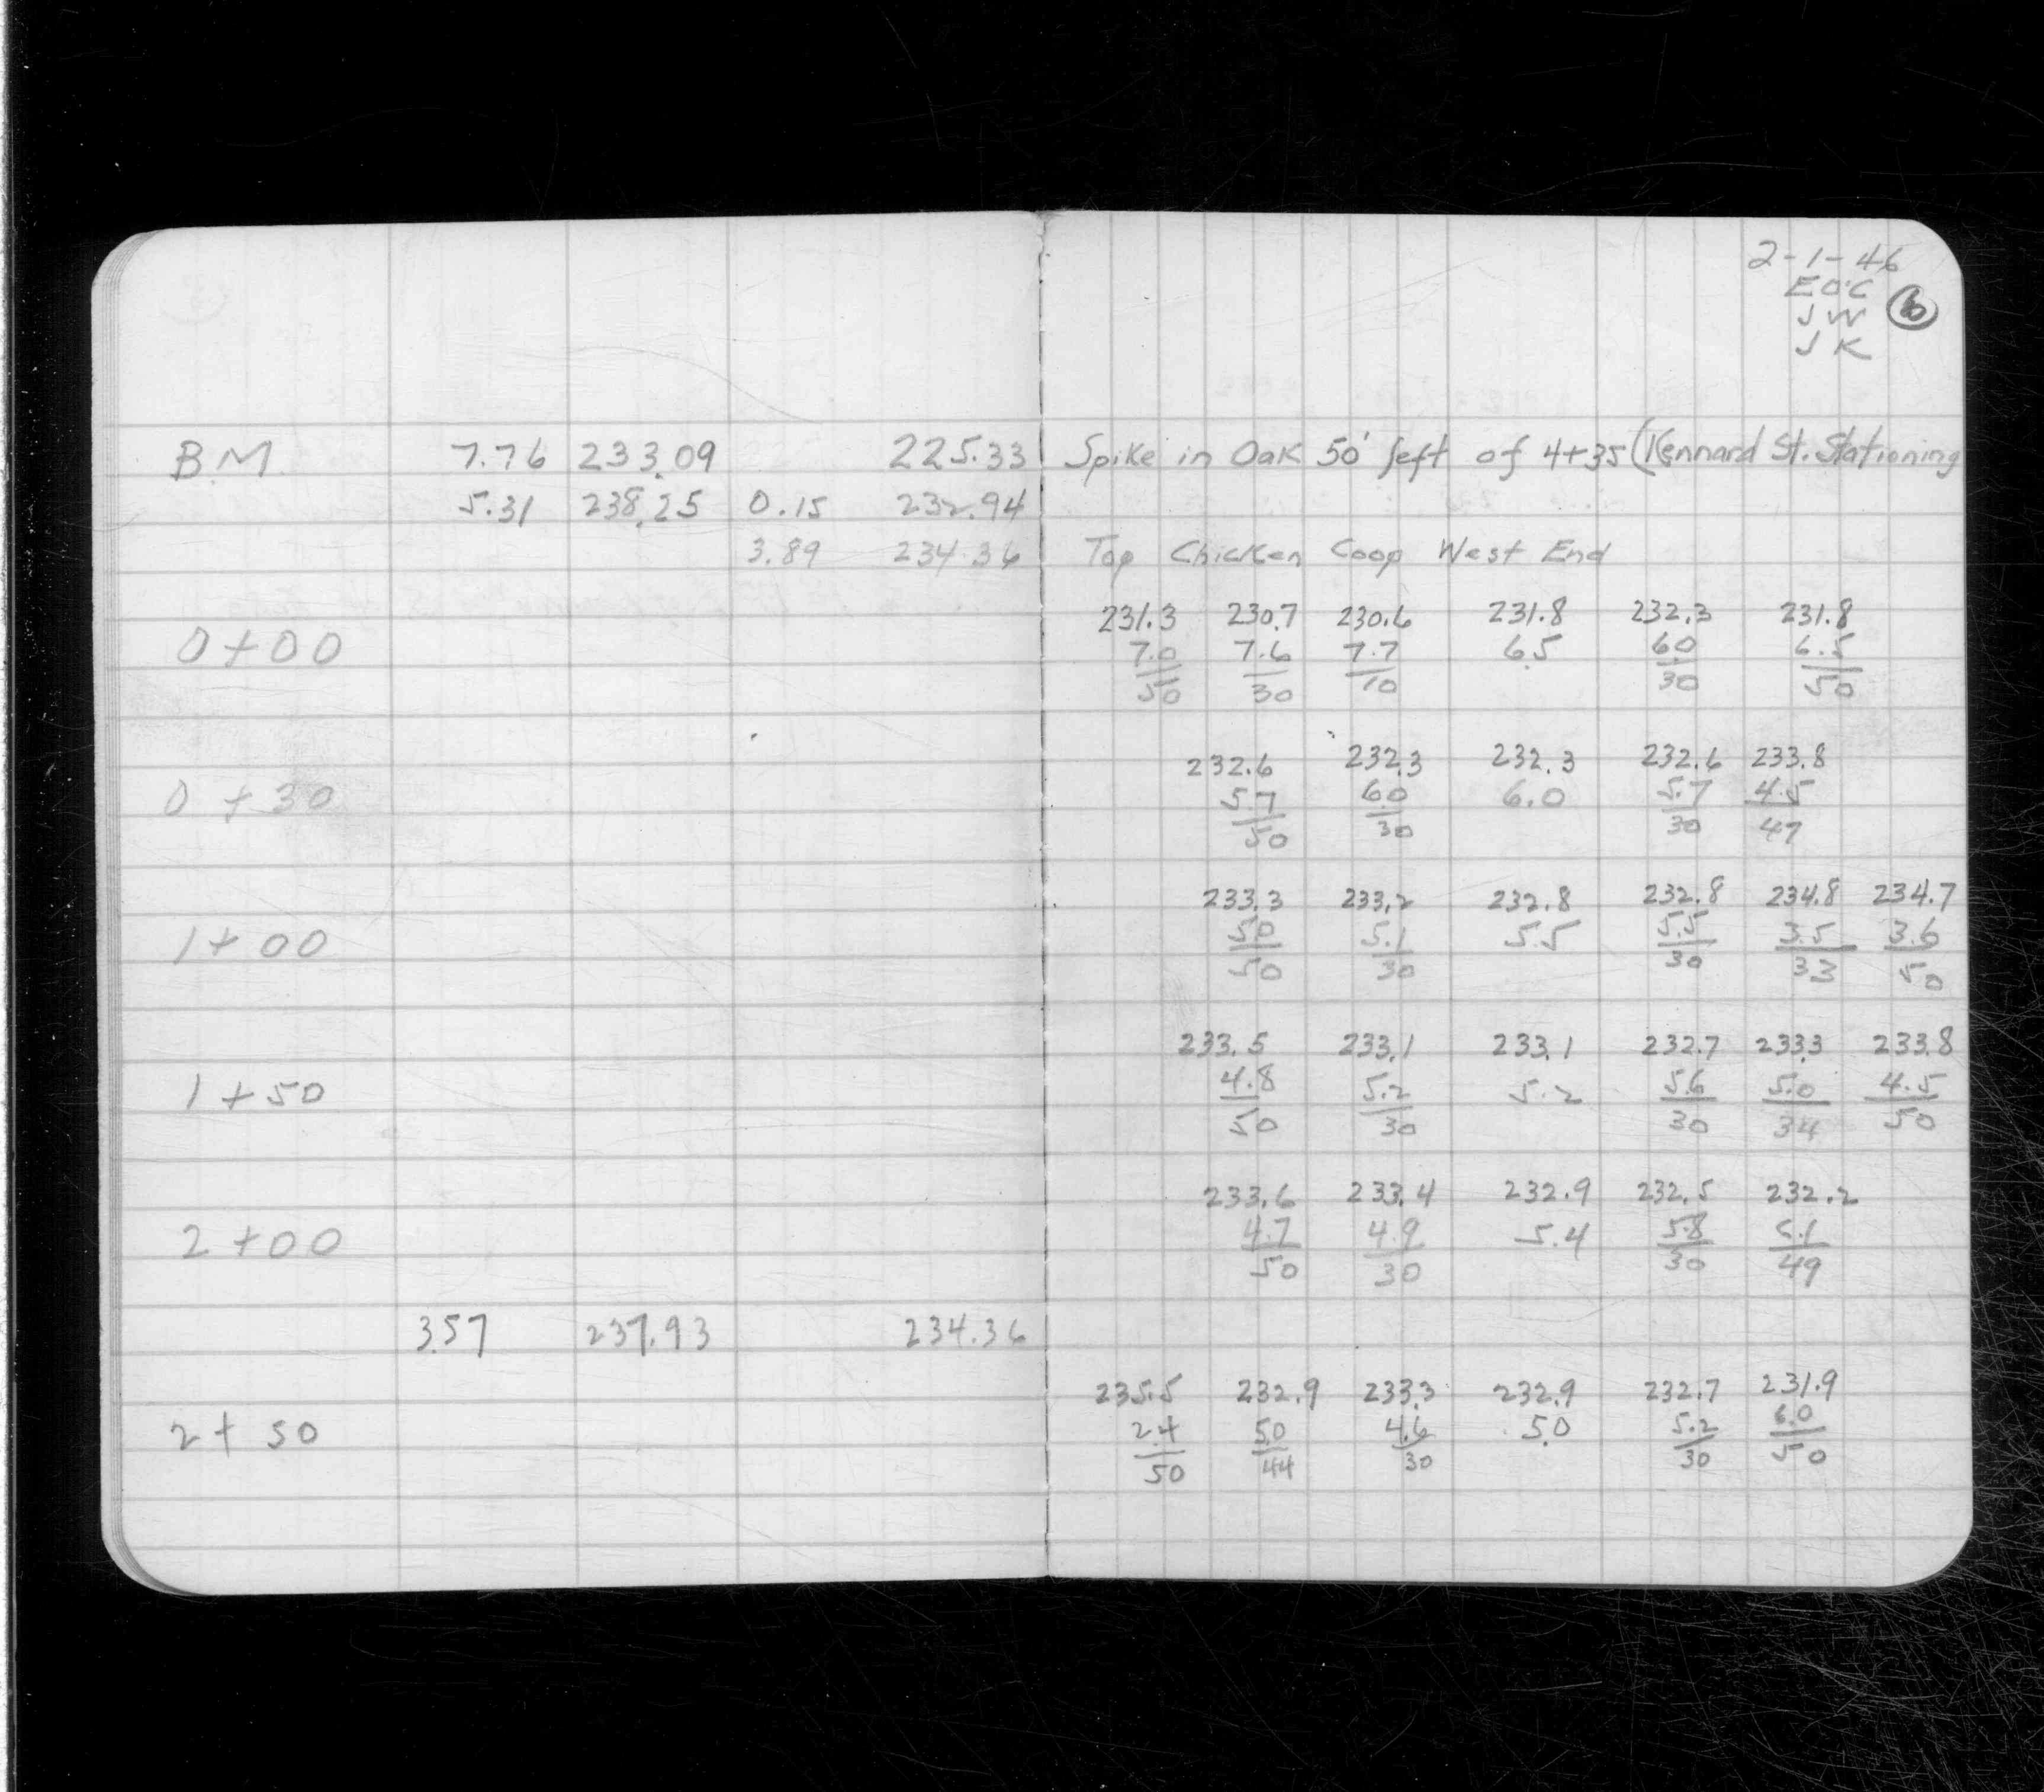 2-1-46
EOC
JW
JK
6
B.M 7.76 233.09 225.33 Spike in Oak 50' left of 4+35 (Kennard St. Stationing
5.31 238.25 0.15 232.94
3.89 234.36 Top Chicken Coop West End
231.3 230.7 230.6 231.8 232.3 231.8
0+00 7.0 7.6 7.7 6.5 6.0 6.5
50 30 10 30 50
232.6 232.3 232.3 232.6 233.8
0+30 5.7 6.0 6.0 5.7 4.5
50 30 30 47
233.3 233.2 232.8 232.8 234.8 234.7
1+00 5.0 5.1 5.5 5.5 3.5 3.6
50 30 30 33 50
233.5 233.1 233.1 232.7 233.3 233.8
1+50 4.8 5.2 5.2 5.6 5.0 4.5
50 30 30 34 50
233.6 233.4 232.9 232.5 232.2
2+00 4.7 4.9 5.4 5.8 6.1
50 30 30 49
3.57 237.93 234.36
235.5 232.9 233.3 232.9 232.7 231.9
2+50 2.4 5.0 4.6 5.0 5.2 6.0
50 44 30 30 50